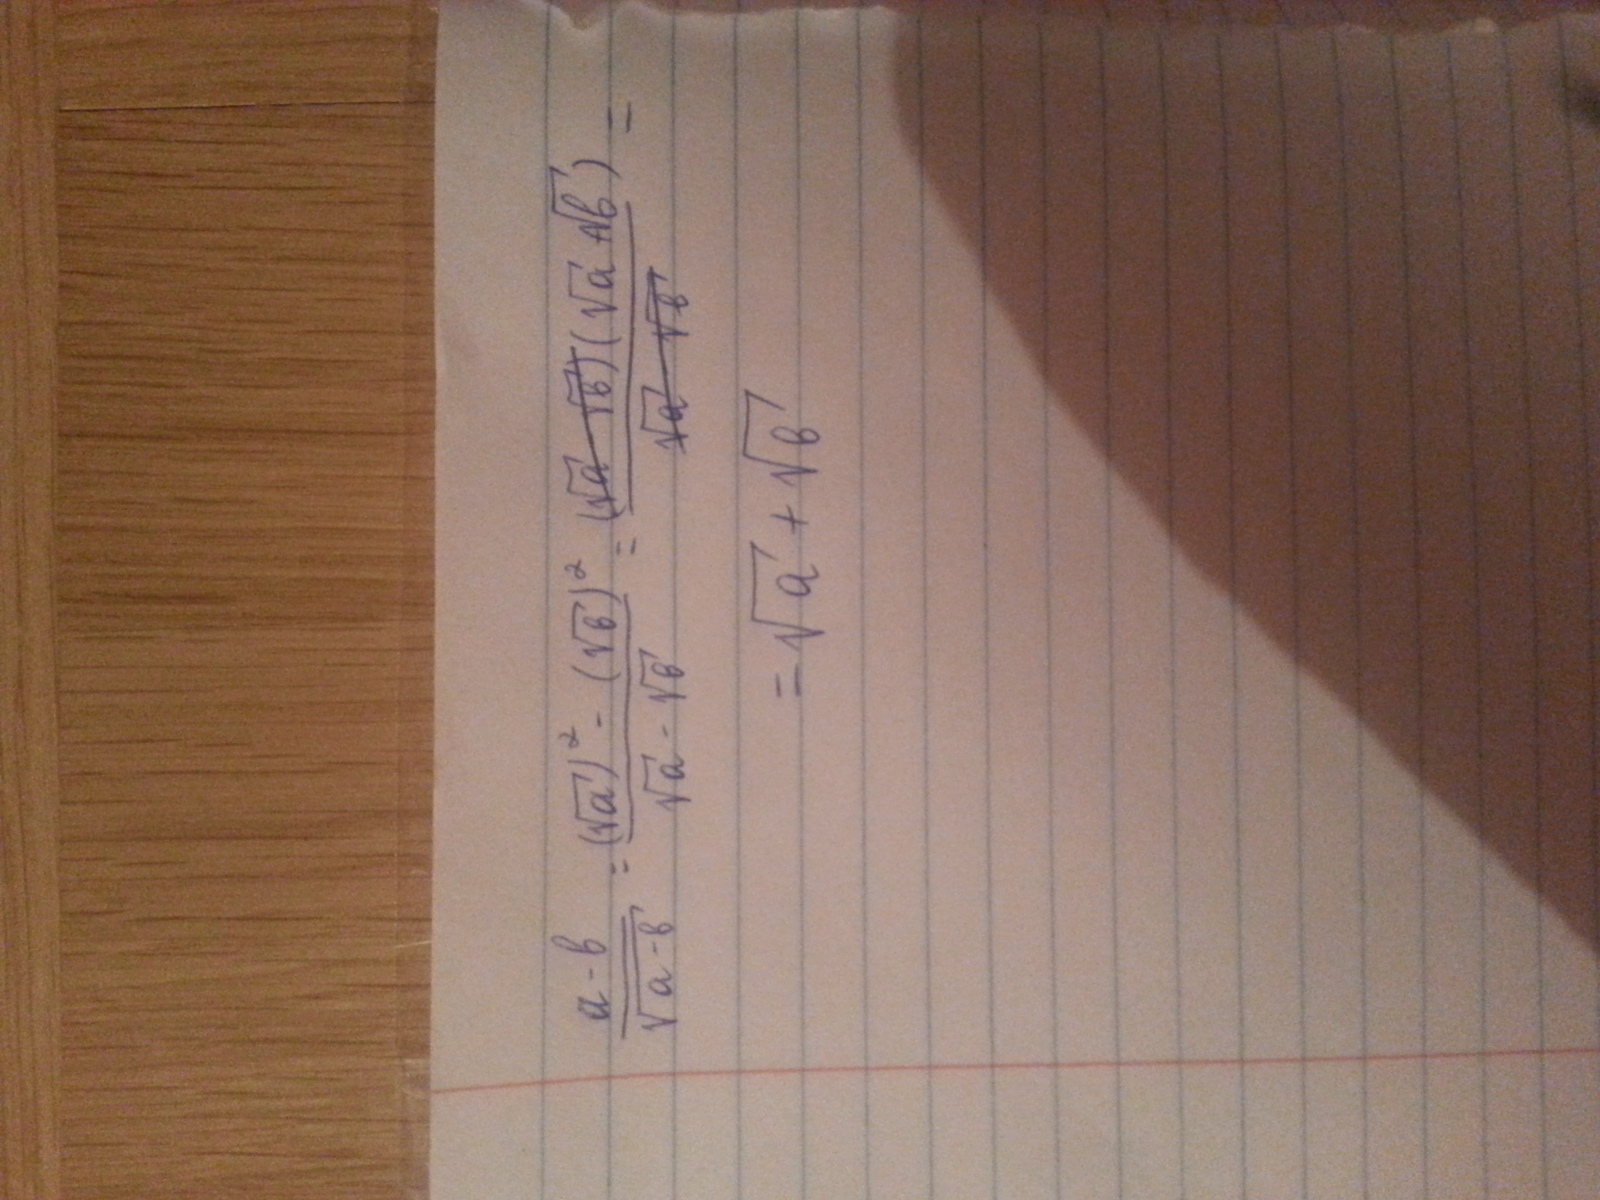 (a-b)/√(a-b) = ((√a)² - (√b)²)/(√a - √b) = ((√a - √b)(√a + √b))/(√a - √b) =
= √a + √b